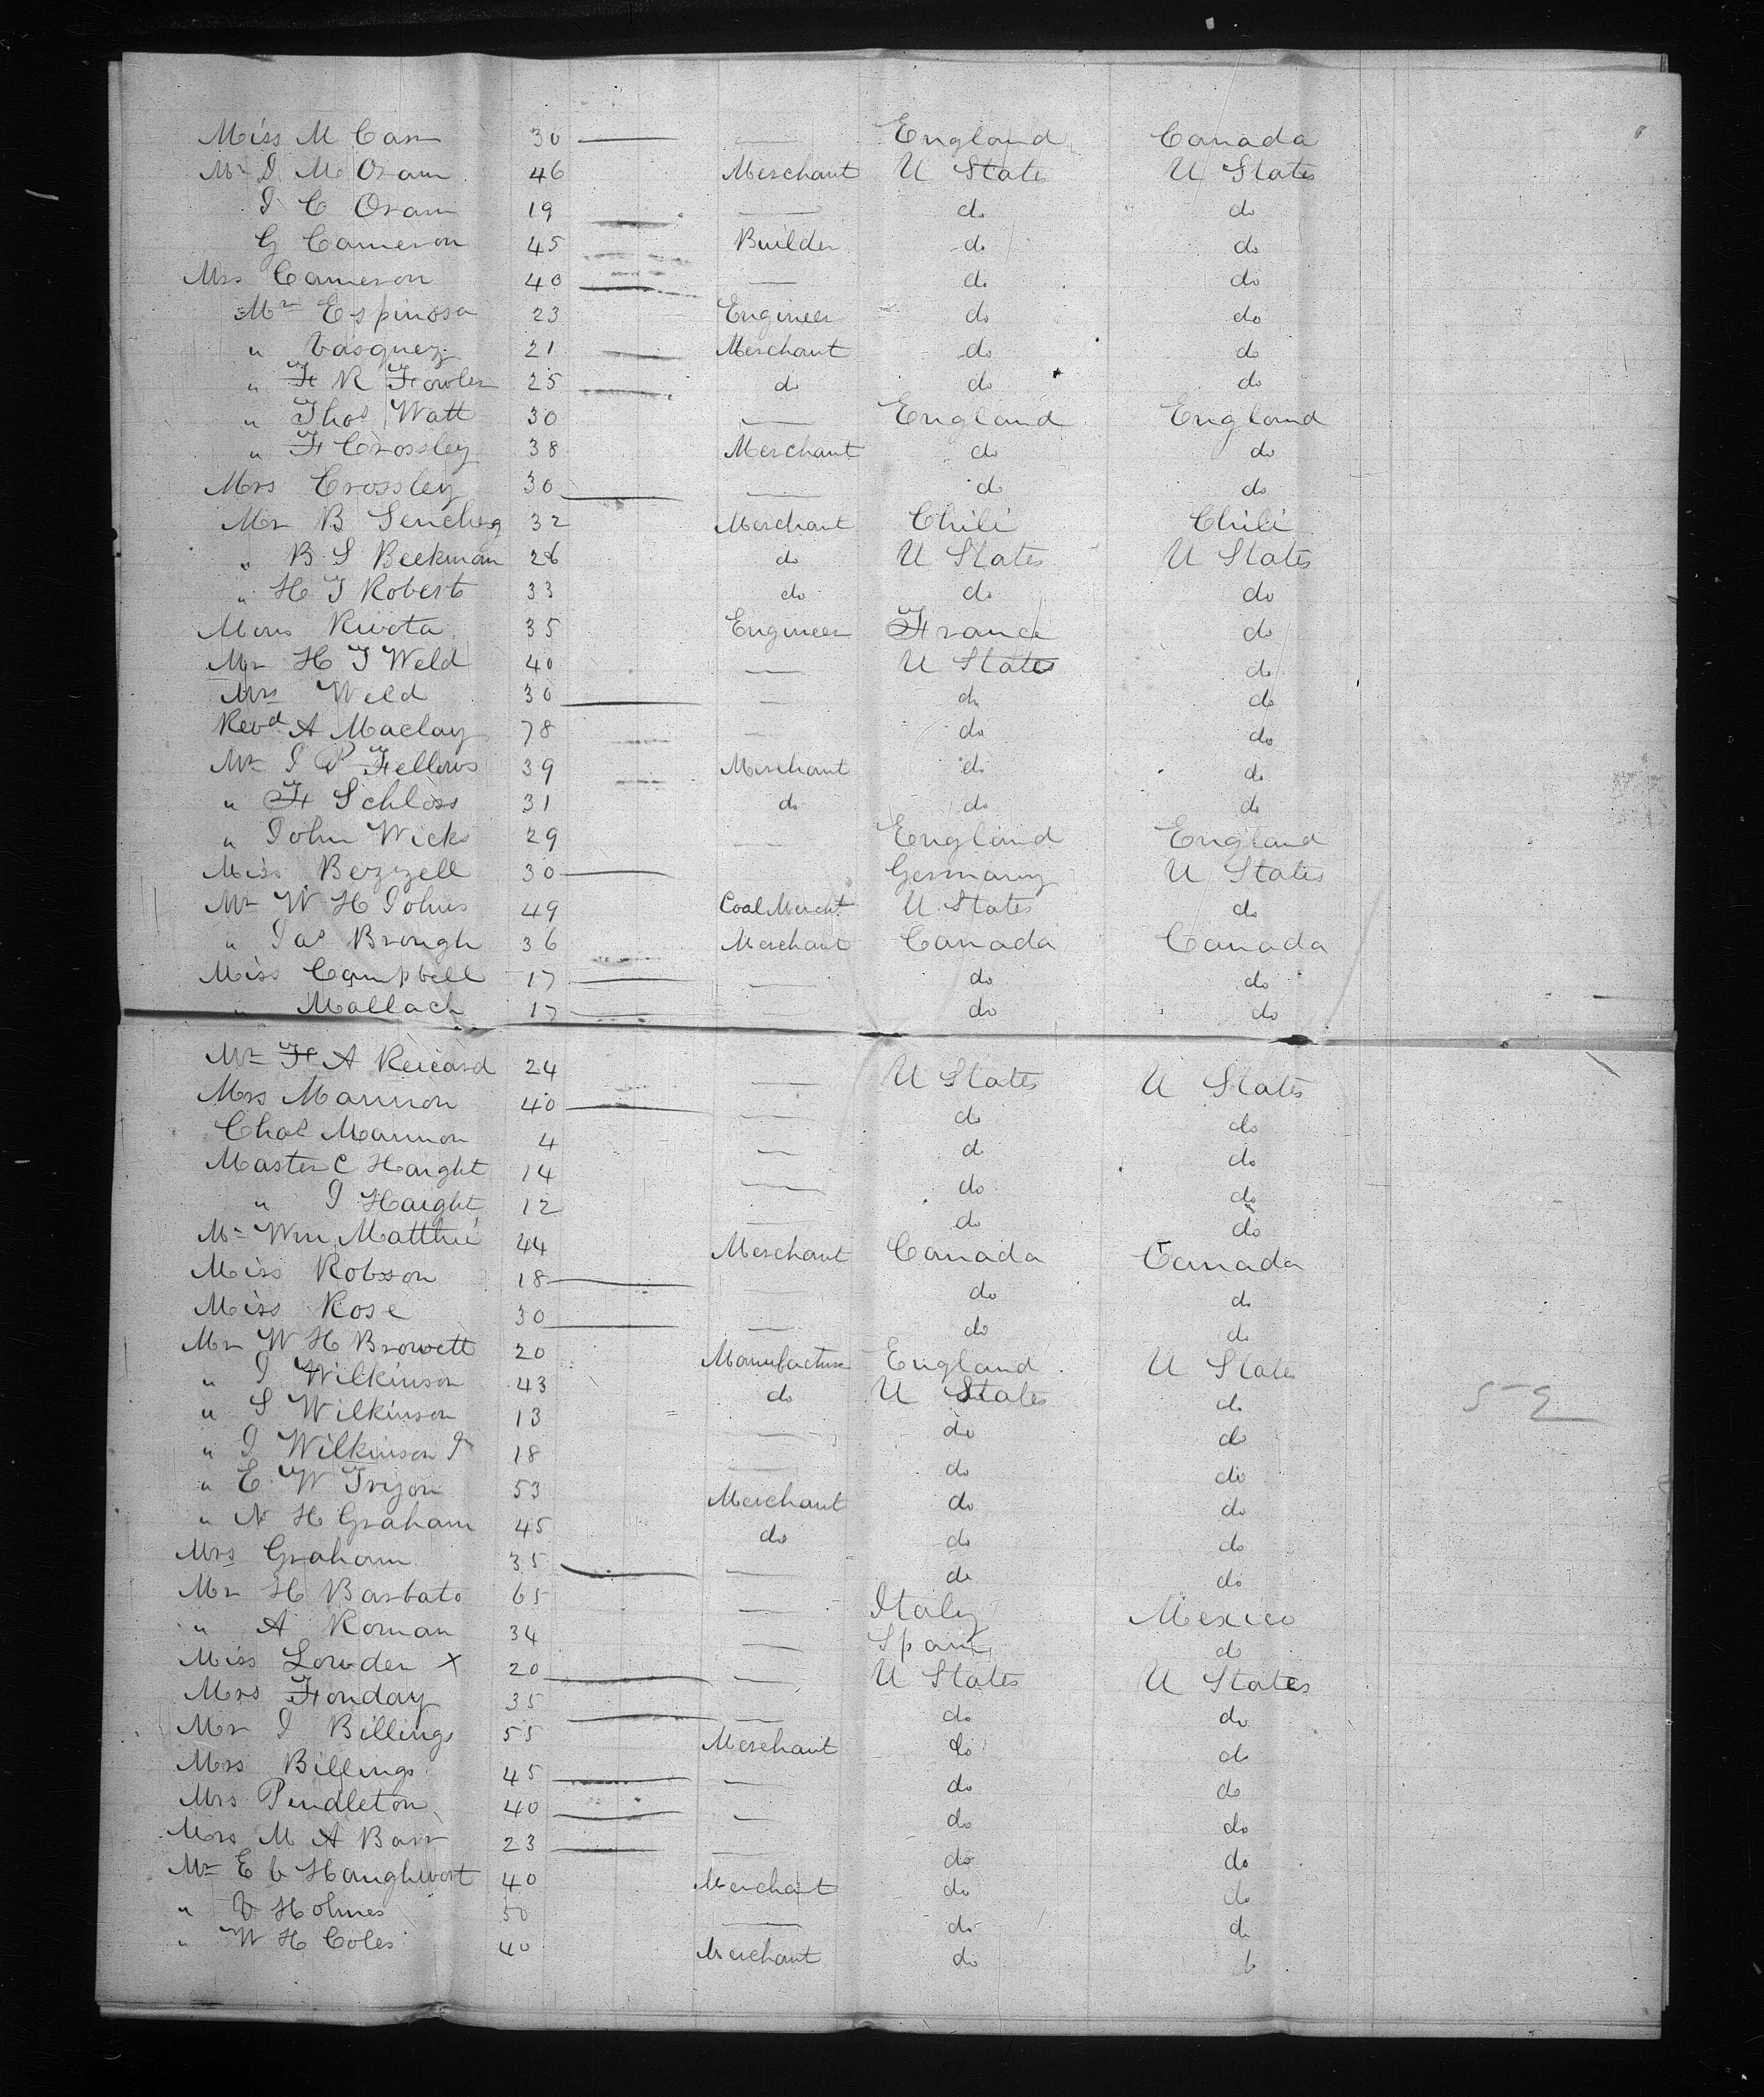 Miss M Carr 30 — — England Canada
Mr J M Oram 46 Merchant U States U States
J C Oram 19 — — do do
G Cameron 45 Builder do do
Mrs Cameron 40 — — do do
Mr Espinosa 23 Engineer do do
" Vasquez 21 Merchant do do
" F R Fowler 25 do do do
" Thos Watt 30 — England England
" F Crossley 38 Merchant do do
Mrs Crossley 30 — — do do
Mr B 32 Merchant Chili Chili
" B S Beekman 26 do U States U States
" H J Roberts 33 do do do
Mons 35 Engineer France do
Mr H J Weld 40 — U States do
Mrs Weld 30 — — do do
Revd A Maclay 78 — do do
Mr J P Fellows 39 Merchant do do
" F Schloss 31 do do do
" John Wicks 29 — England England
Miss Bezzell 30 — Germany U States
Mr W H Johns 49 Coal Mercht U States do
" Jas Brough 36 Merchant Canada Canada
Miss Campbell 17 — — do do
" Mallach 17 — — do do
Mr F A Reicard 24 — U States U States
Mrs Mannon 40 — — do do
Chas Mannon 4 — do do
Master C Haight 14 — do do
" J Haight 12 — do do
Mr Wm Matthie 44 Merchant Canada Canada
Miss Robson 18 — — do do
Miss Rose 30 — — do do
Mr W H Browett 20 Manufacturer England U States
" J Wilkinson 43 do U States do
" S Wilkinson 13 — do do
" J Wilkinson Jr 18 — do do
" E W Tryon 53 Merchant do do
" N H Graham 45 do do do
Mrs Graham 35 — — do do
Mr H Barbato 65 — Italy Mexico
" A Roman 34 — Spain do
Miss Lowder X 20 — — U States U States
Mrs Fonday 35 — — do do
Mr J Billings 55 Merchant do do
Mrs Billings 45 — — do do
Mrs Pendleton 40 — — do do
Mrs M A Barr 23 — — do do
Mr E V Haughwort 40 Merchant do do
" Holmes 50 — do do
" W H Coles 40 Merchant do do